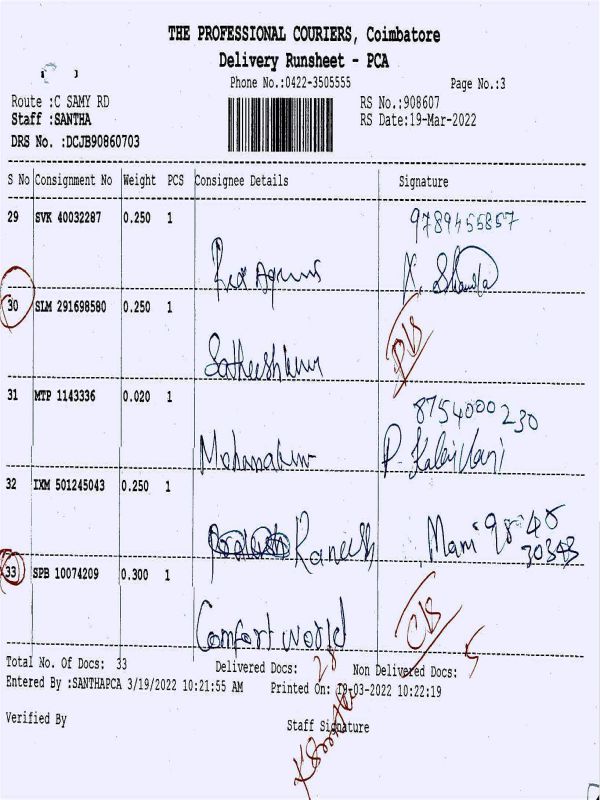 THE PROFESSIONAL COURIERS, Coimbatore
Delivery Runsheet - PCA
Phone No.:0422-3505555
Page No.:3
Route :C SAMY RD
RS No.:908607
Staff :SANTHA
RS Date:19-Mar-2022
DRS No. :DCJB90860703
S No Consignment No Weight PCS Consignee Details Signature
9789455857
29 SVK 40032287 0.250 1
30 SLM 291698580 0.250 1
Satheeshkumr
31 MTP 1143336 0.020 1
8754000230
32 IXM 501245043 0.250 1
Mani 98 40
30343
33 SPB 10074209 0.300 1
Comfort world
Total No. Of Docs: 33 Delivered Docs: 28 Non Delivered Docs: 5
Entered By :SANTHAPCA 3/19/2022 10:21:55 AM Printed On: 19-03-2022 10:22:19
Verified By Staff Signature